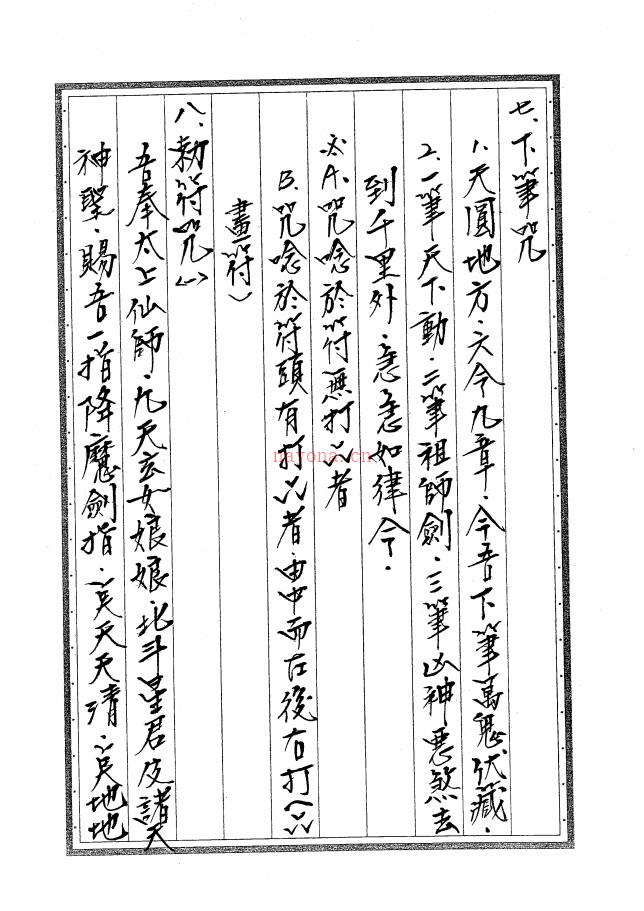 七、下筆咒
1、天圓地方、六令九章、今吾下筆萬鬼伏藏、
2、一筆天下動、二筆祖師劍、三筆凶神惡煞去
到千里外、急急如律令、
※A、咒唸於符無打∴者
B、咒唸於符頭有打∴者、由中而左後右打(∴
畫符)
八、勅符咒(一)
吾奉太上仙師、九天玄女娘娘、北斗星君及諸天
神聖、賜吾一指降魔劍指、一、指天天清、一、指地地
nayona.cn